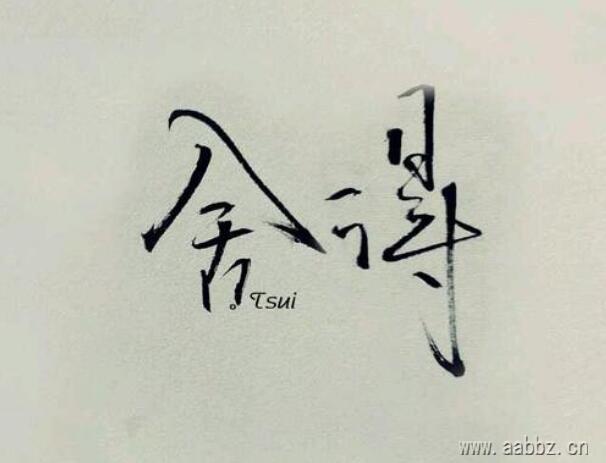 舍得
。Tsui
www.aabbz.cn